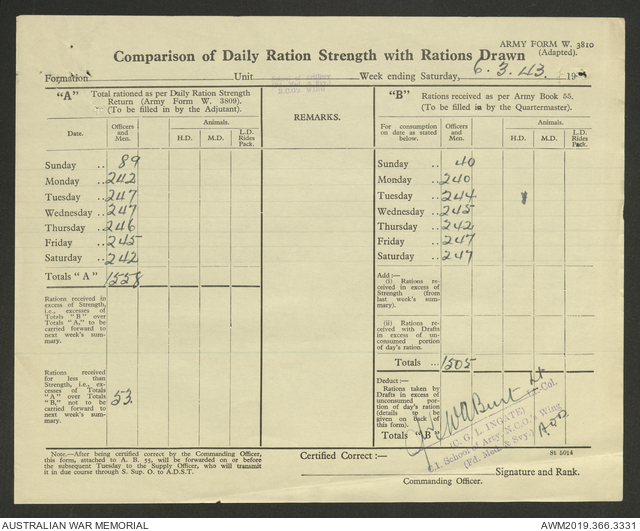 ARMY FORM W. 3810
(Adapted).
Comparison of Daily Ration Strength with Rations Drawn
Formation Unit Week ending Saturday, 6.3.43. 19
"A" Total rationed as per Daily Ration Strength
Return (Army Form W. 3809).
(To be filled in by the Adjutant).
REMARKS.
"B" Rations received as per Army Book 55.
(To be filled in by the Quartermaster).
Date. Officers and Men. Animals.
H.D. M.D. L.D. Rides Pack.
For consumption on date as stated below. Officers and Men. Animals.
H.D. M.D. L.D. Rides Pack.
Sunday .. 89
Monday .. 242
Tuesday .. 247
Wednesday .. 247
Thursday .. 246
Friday .. 245
Saturday .. 242
Totals "A" 1558
Rations received in
excess of Strength,
i.e., excesses of
Totals "B" over
Totals "A," to be
carried forward to
next week's sum-
mary.
Rations received
for less than
Strength, i.e., ex-
cesses of Totals
"A" over Totals
"B," not to be
carried forward to
next week's sum-
mary.
53.
Sunday .. 40
Monday .. 240
Tuesday .. 244
Wednesday .. 245
Thursday .. 242
Friday .. 247
Saturday .. 247
Add :—
(i) Rations re-
ceived in excess of
Strength (from
last week's sum-
mary).
(ii) Rations re-
ceived with Drafts
in excess of un-
consumed portion
of day's ration.
Totals ... 1505
Deduct :—
Rations taken by
Drafts in excess of
unconsumed por-
tion of day's ration
(details to be
given on back of
this form).
Totals "B"
Lt. Col.
(C. G. L. INGATE)
C.I. School of Army N.C.O.'s Wing
Note.—After being certified correct by the Commanding Officer,
this form, attached to A.B. 55, will be forwarded on or before
the subsequent Tuesday to the Supply Officer, who will transmit
it in due course through S. Sup. O. to A.D.S.T.
Certified Correct :—
St 5014
Signature and Rank.
Commanding Officer.
AUSTRALIAN WAR MEMORIAL
AWM2019.366.3331